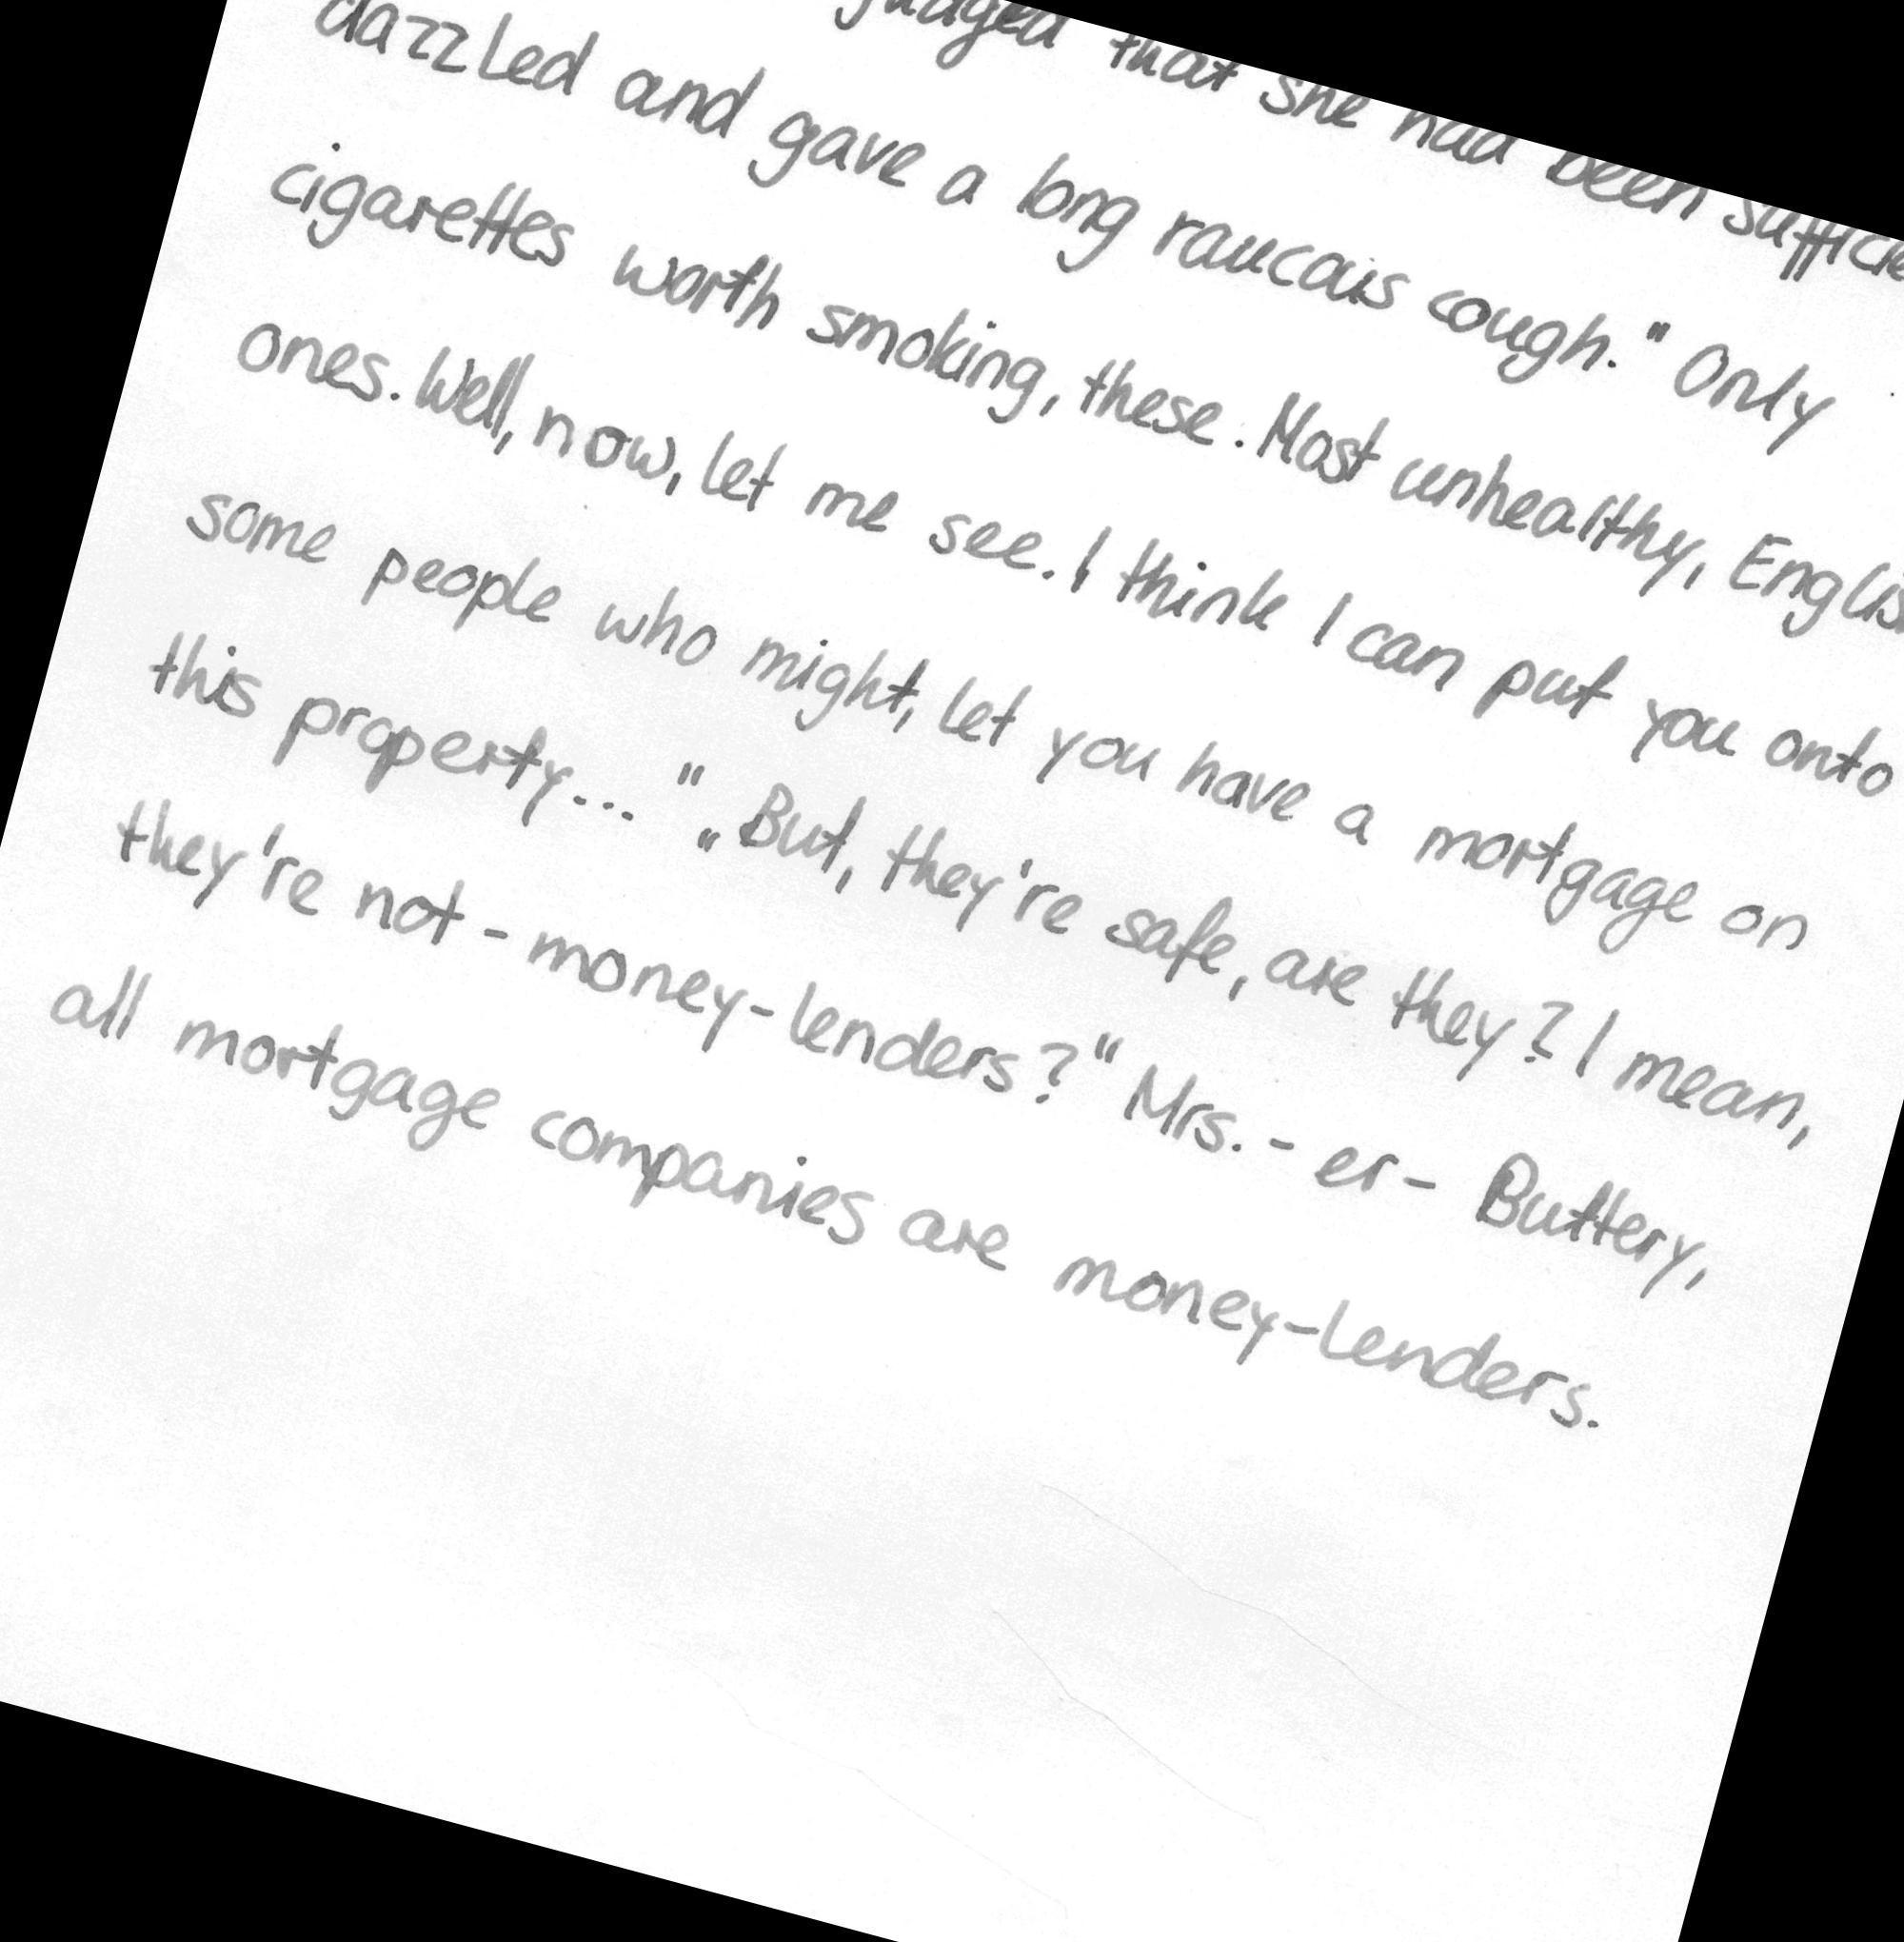 judged that she had been
dazzled and gave a long raucous cough." Only
cigarettes worth smoking, these. Most unhealthy,
ones. Well, now, let me see. I think I can put you onto
some people who might, let you have a mortgage on
this property... " „But, they're safe, are they? I mean,
they're not - money-lenders?" Mrs. - er - Buttery,
all mortgage companies are money-lenders.